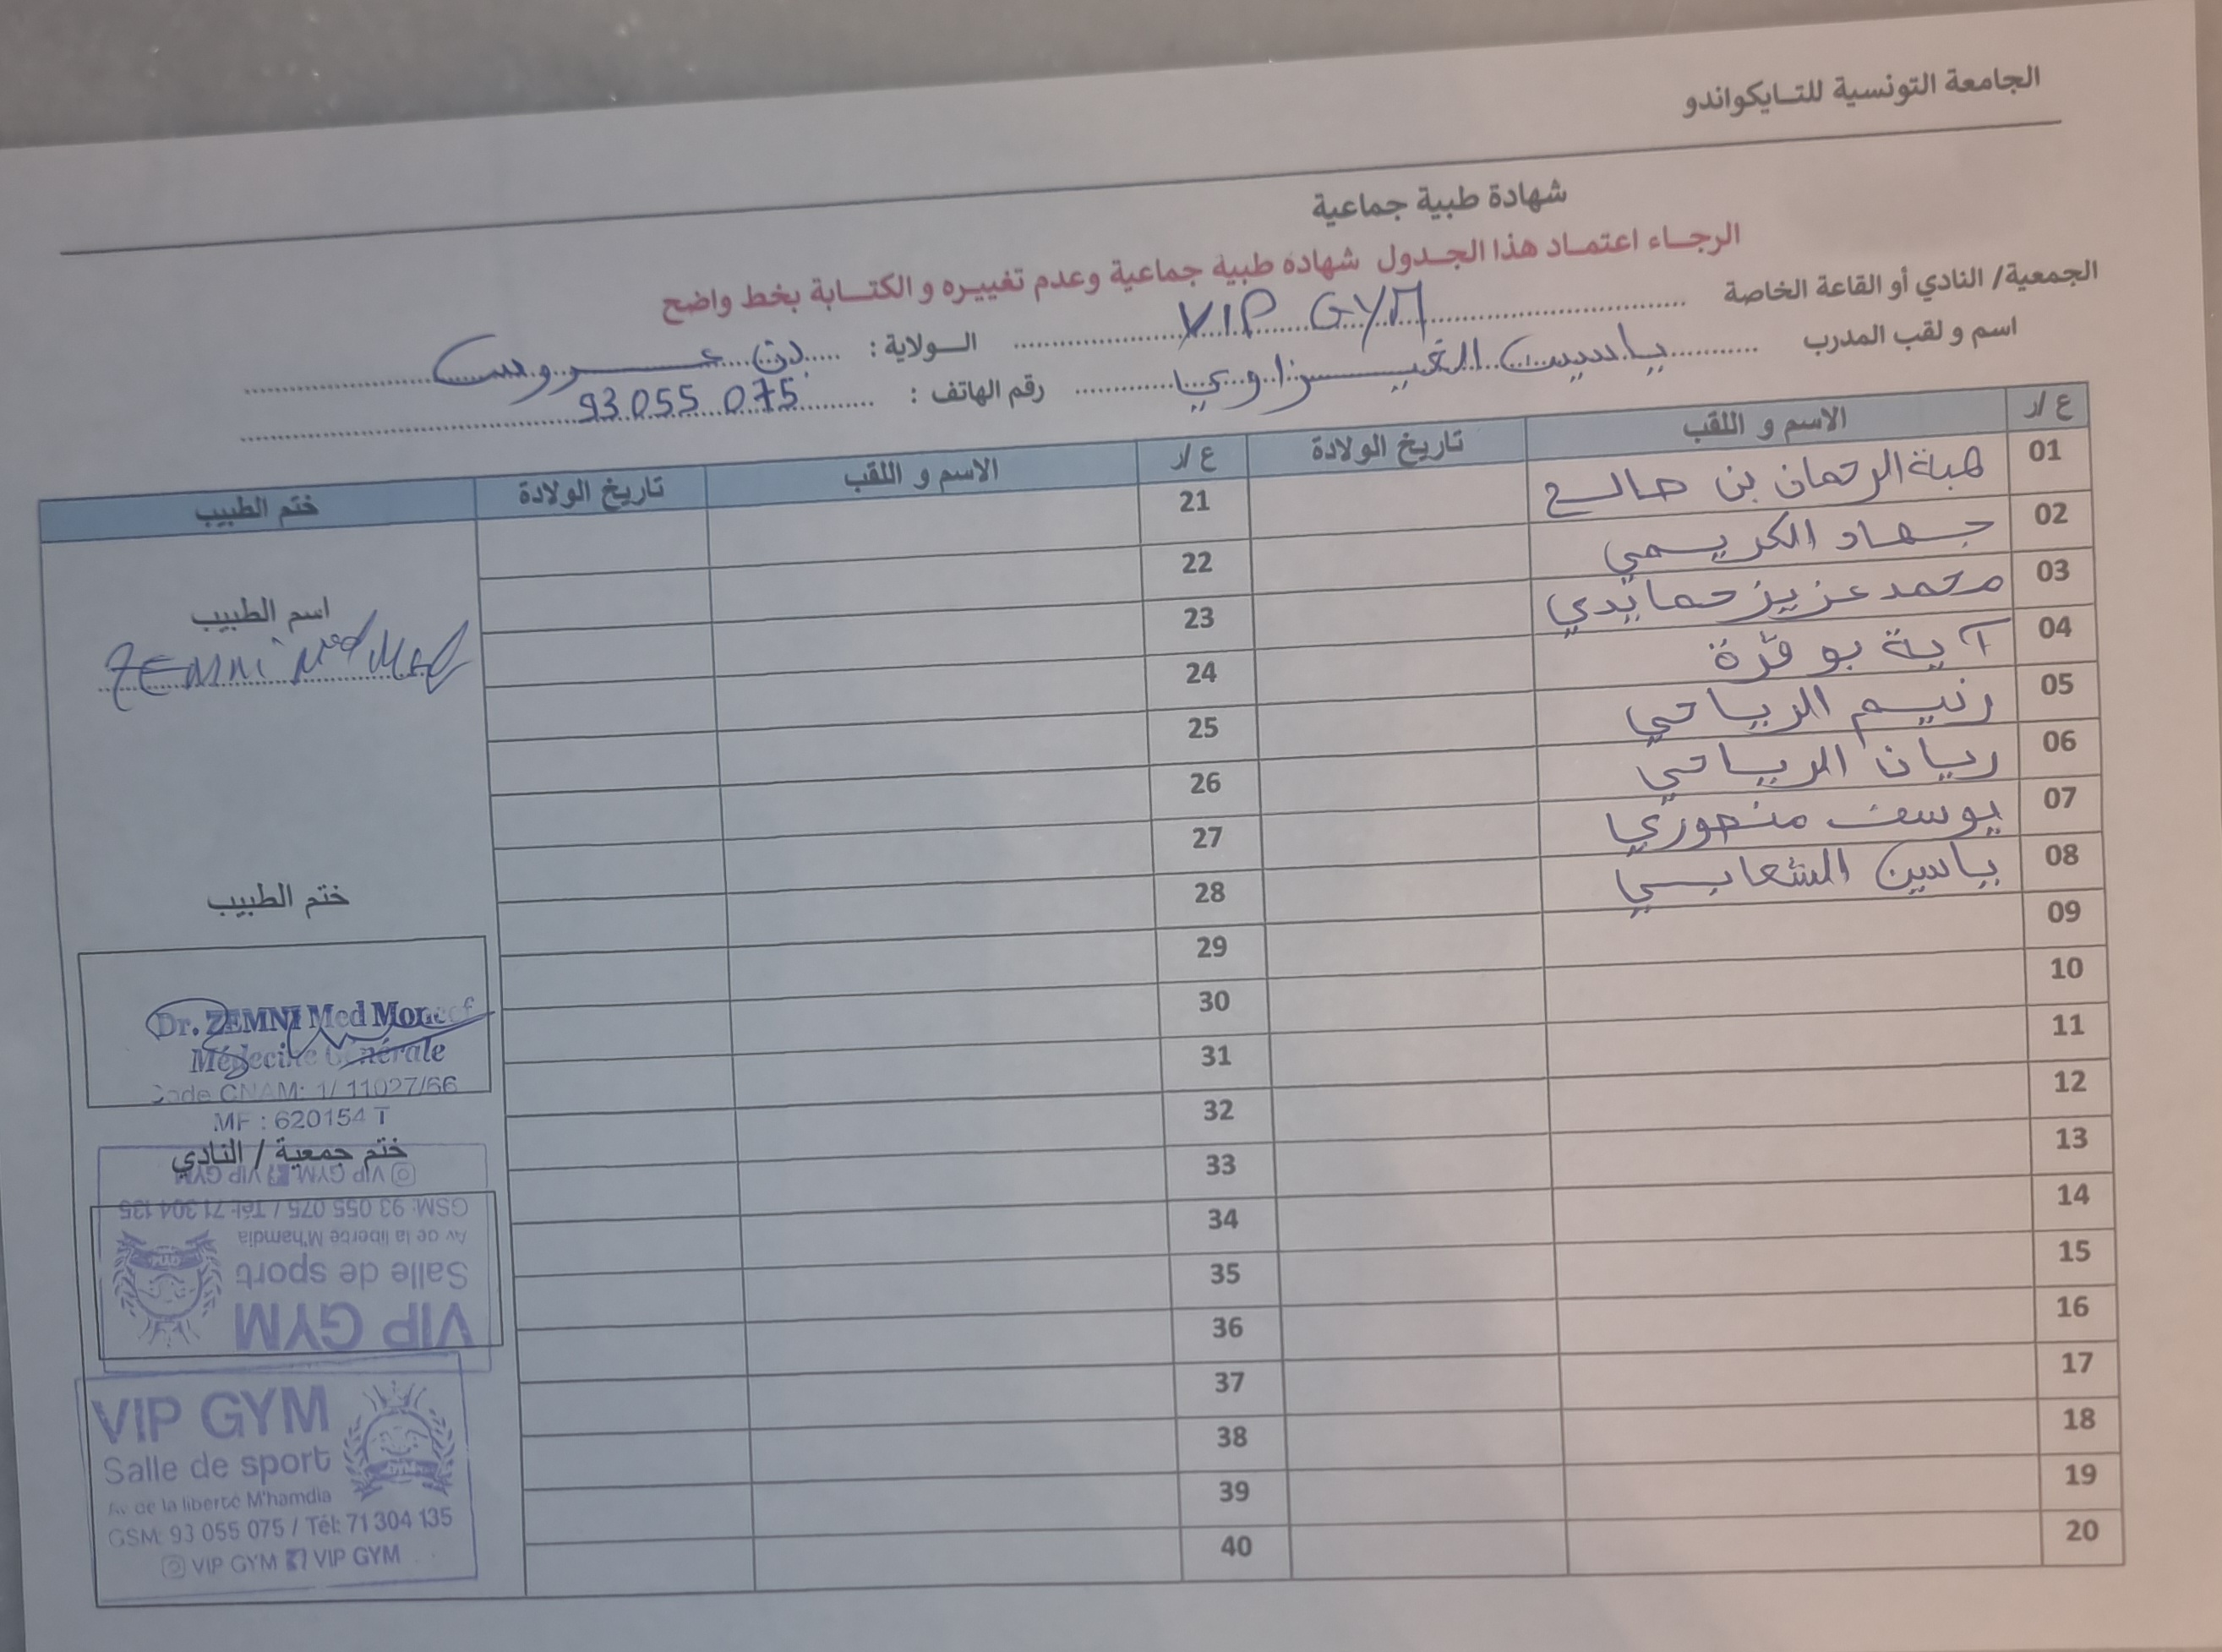 الجامعة التونسية للتايكواندو
شهادة طبية جماعية
الرجاء اعتماد هذا الجدول شهادة طبية جماعية وعدم تغييره و الكتابة بخط واضح
الجمعية/ النادي أو القاعة الخاصة VIP GYM الولاية : بن عروس
اسم و لقب المدرب ياسين الغيزاوي رقم الهاتف : 93 055 075
ع /ر الاسم و اللقب تاريخ الولادة ع /ر الاسم و اللقب تاريخ الولادة ختم الطبيب
01 هبة الرحمان بن صالح 21
02 جهاد الكريمي 22
03 محمد عزيز حمايدي 23
04 آية بوقرة 24
05 رنيم الرياحي 25
06 ريان الرياحي 26
07 يوسف منصوري 27
08 ياسين الشعابي 28
09 29
10 30
11 31
12 32
13 33
14 34
15 35
16 36
17 37
18 38
19 39
20 40
اسم الطبيب
ZEMNI Med
ختم الطبيب
Dr. ZEMNI Med Moncef
Médecine Générale
Code CNAM: 1/ 11027/66
MF : 620154 T
ختم جمعية / النادي
VIP GYM
Salle de sport
Av de la liberté M'hamdia
GSM: 93 055 075 / Tél: 71 304 135
VIP GYM VIP GYM
VIP GYM
Salle de sport
Av de la liberté M'hamdia
GSM: 93 055 075 / Tél: 71 304 135
VIP GYM VIP GYM